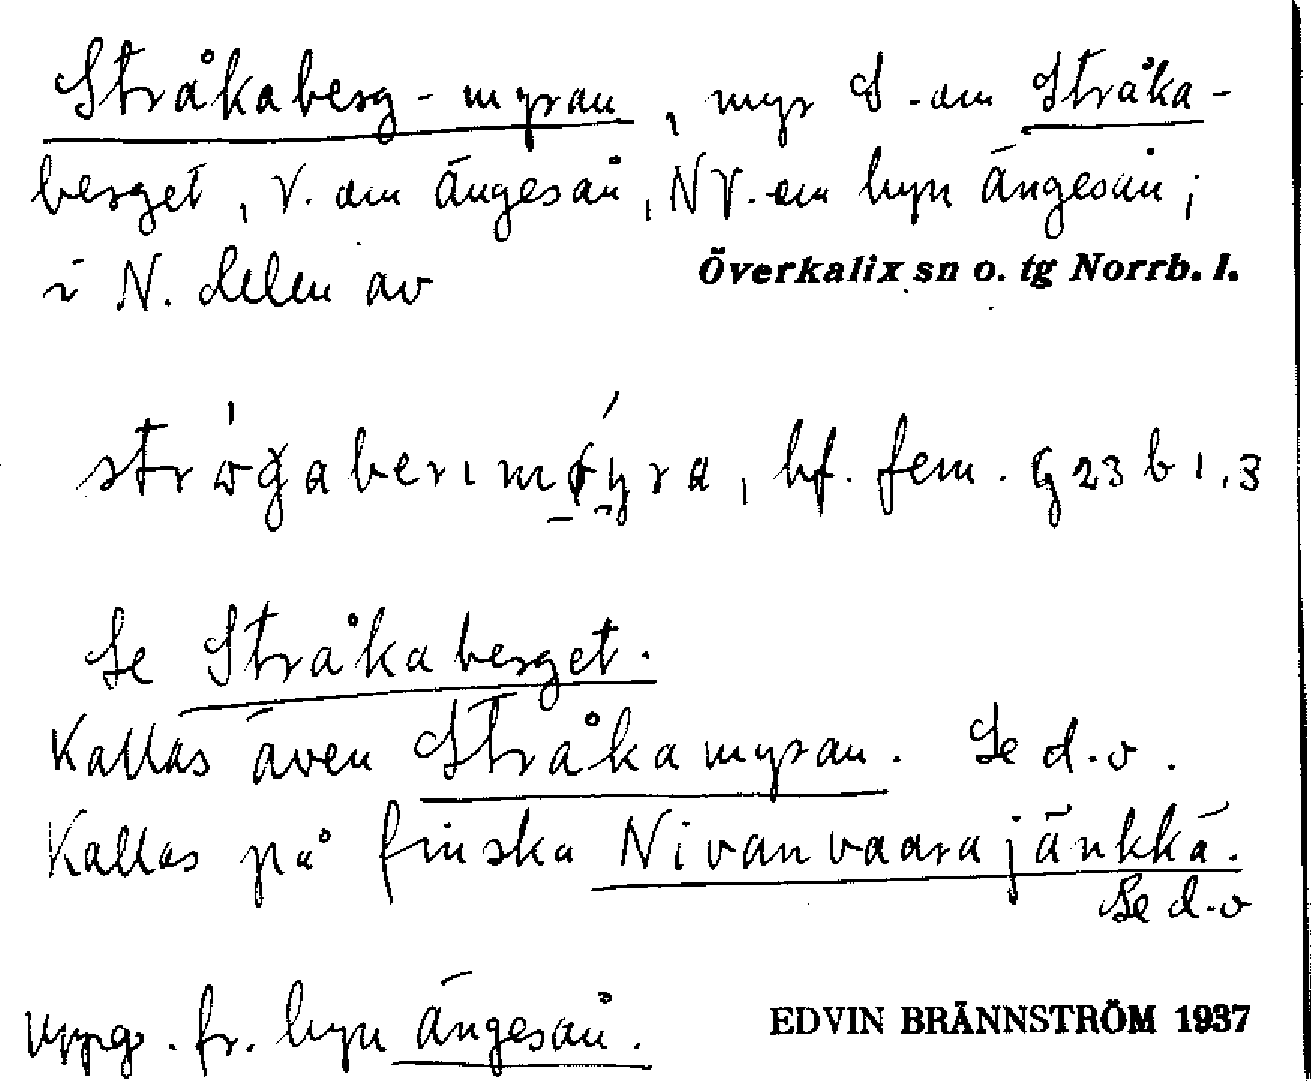 Stråkaberg-myran, myr S.om Stråka-
berget, V. om Ängesån, NV.om byn Ängesån;
i N. delen av Överkalix sn o. tg Norrb. l.
bf. fem. G 23 b 1.3
Se Stråkaberget.
Kallas även Stråkamyran. Se d.o.
Kallas på finska Nivanvaarajänkkä.
Se d.o
Uppg. fr. byn Ängesån.
EDVIN BRÄNNSTRÖM 1937